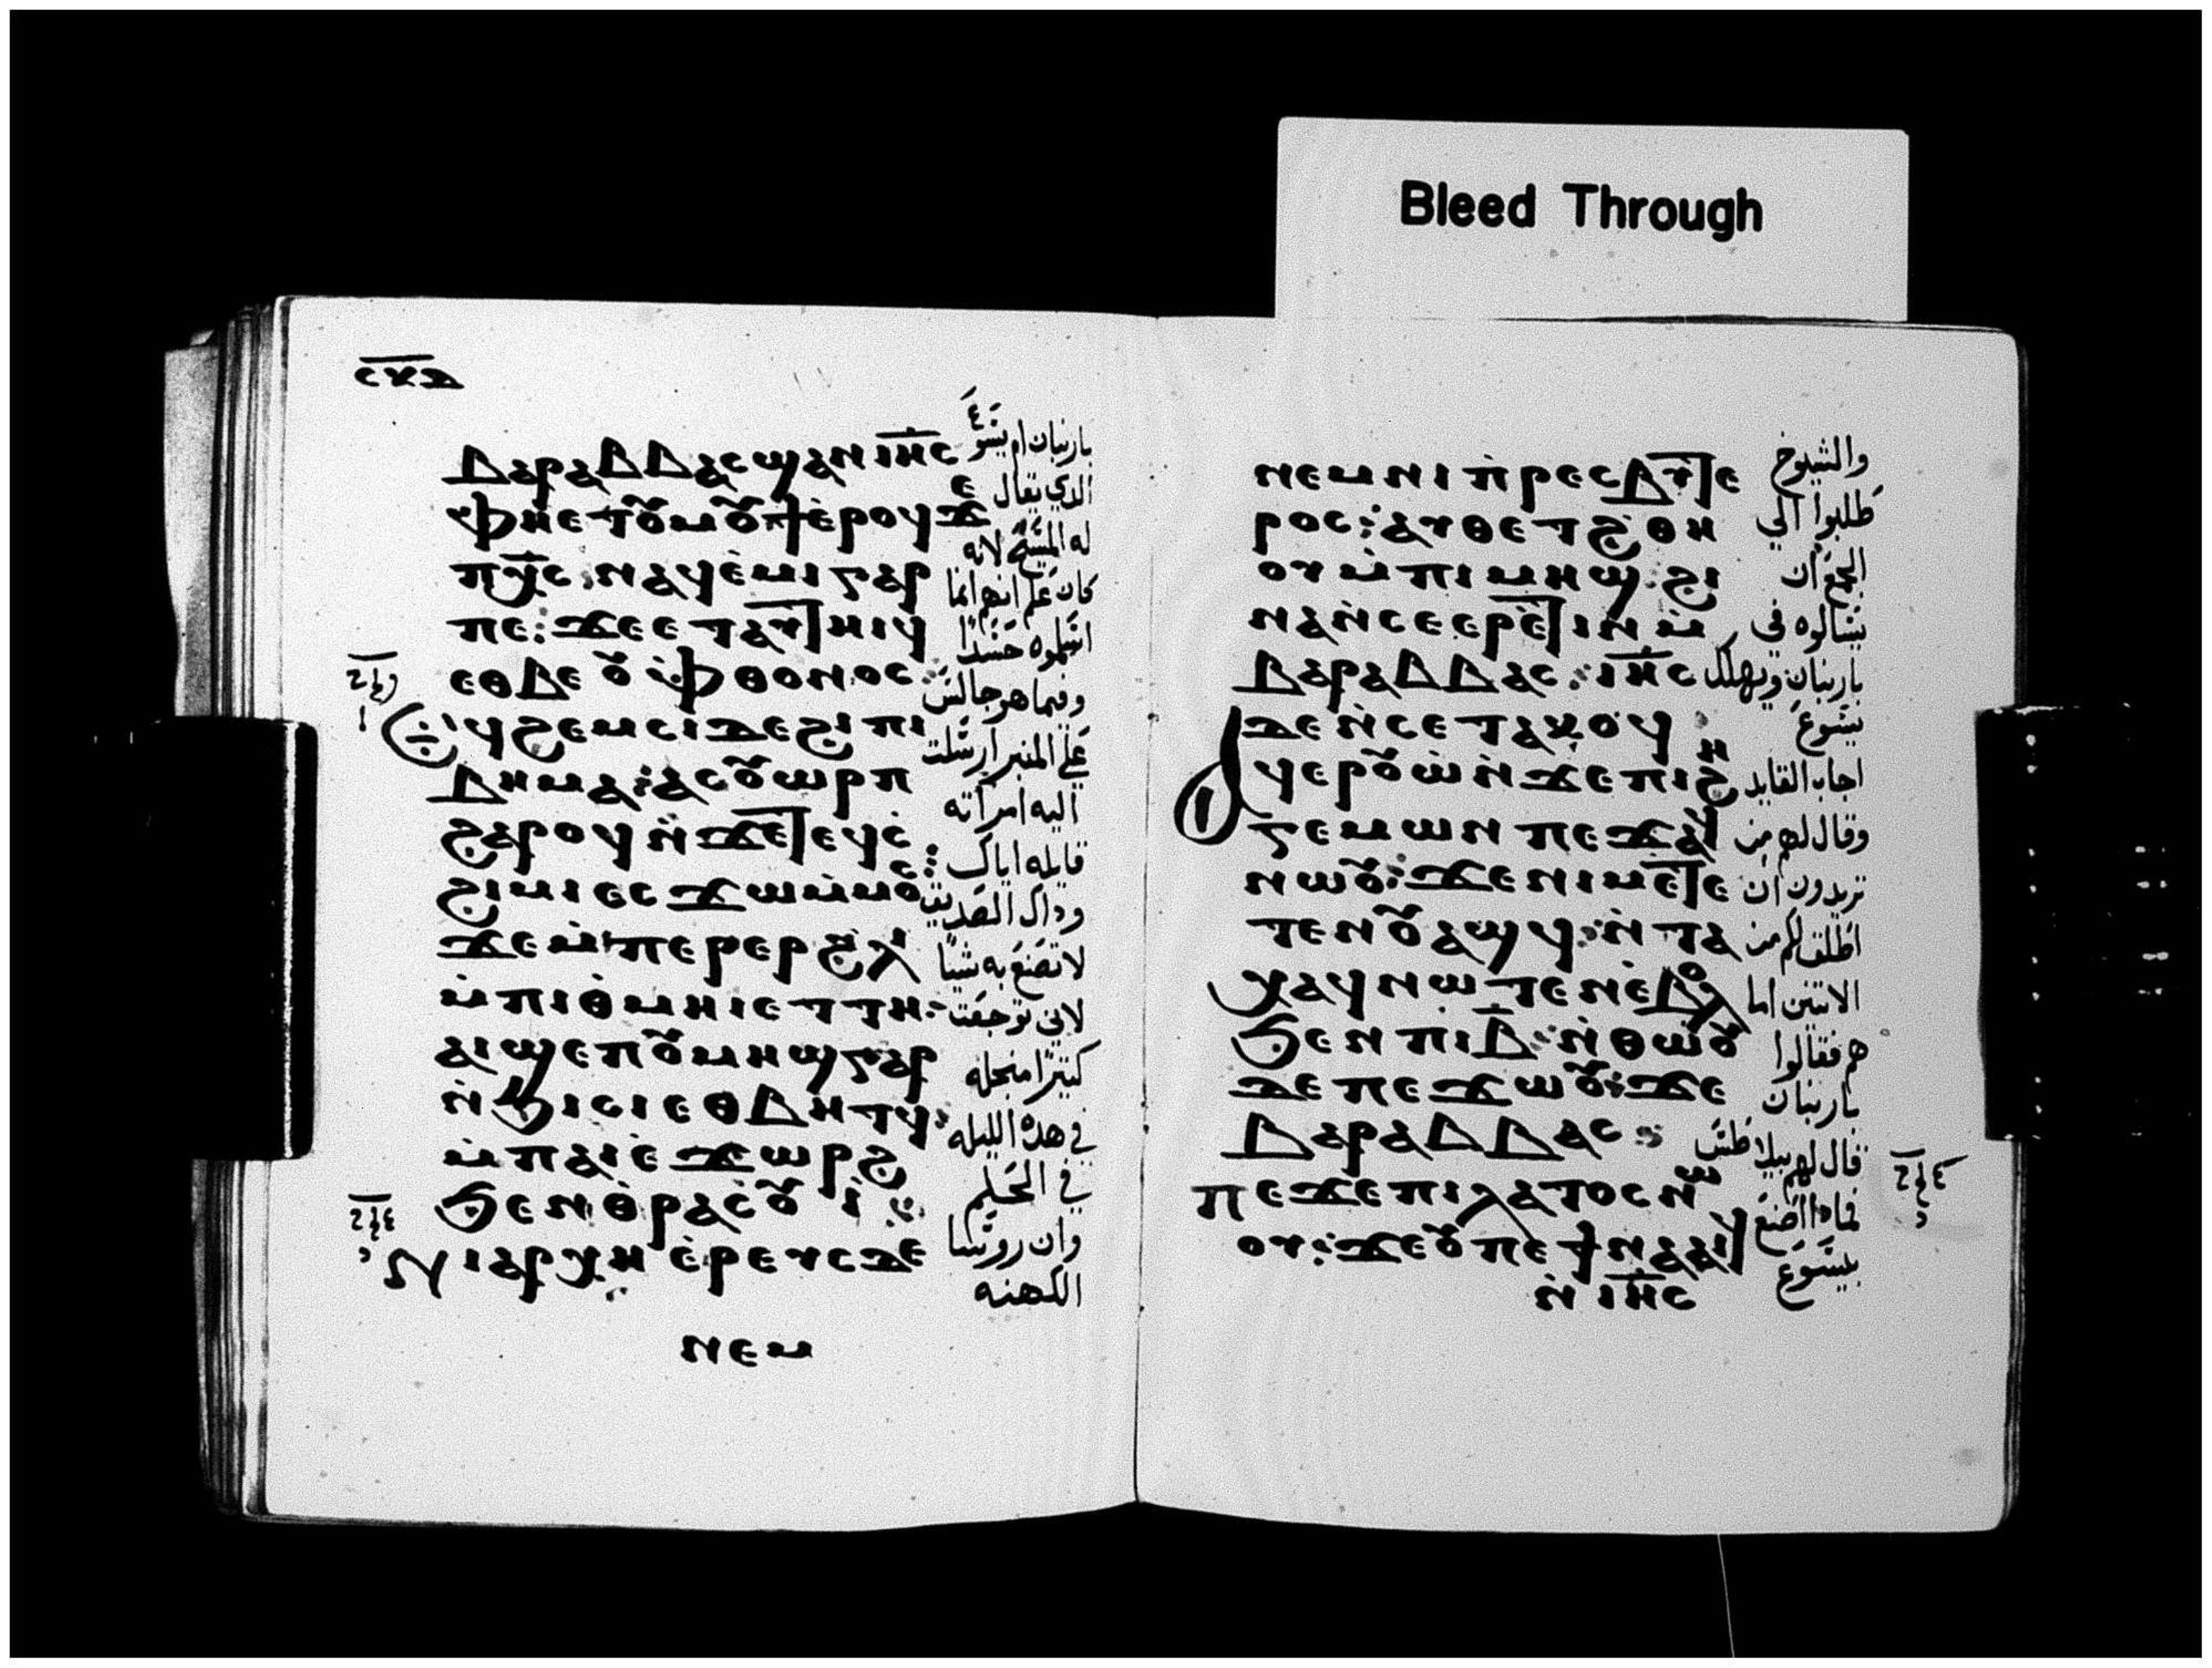 Bleed Through
ⲥⲝⲇ
ⲃⲁⲣⲁⲃⲃⲁⲥ ϣⲁⲛ ⲓⲏⲥ
ⲫⲏⲉⲧⲟⲩⲙⲟⲩϯ ⲉⲣⲟϥ ϫⲉ
ⲡⲭⲥ: ⲛⲁϥⲉⲙⲓ ⲅⲁⲣ
ⲡⲉ: ϫⲉ ⲉⲧⲁⲩⲧⲏⲓϥ
ⲉⲑⲃⲉ ⲟⲩⲫⲑⲟⲛⲟⲥ:
ⲉϥϩⲉⲙⲥⲓ ⲇⲉ ϩⲓ ⲡⲓ
ⲃⲏⲙⲁ: ⲁⲥⲟⲩⲱⲣⲡ
ϩⲁⲣⲟϥ ⲛϫⲉ ⲧⲉϥⲥ
ϩⲓⲙⲓ ⲉⲥϫⲱ ⲙⲙⲟⲥ:
ϫⲉ ⲙⲡⲉⲣⲉⲣ ϩⲗⲓ
ⲙⲡⲓⲑⲙⲏⲓ ⲉⲧⲧⲏ:
ⲁⲓϣⲉⲡ ⲟⲩⲙⲏϣ ⲅⲁⲣ
ⲛϧⲓⲥⲓ ⲉⲑⲃⲏⲧϥ:
ⲙⲡⲁⲓⲉϫⲱⲣϩ
ϧⲉⲛ ⲑⲣⲁⲥⲟⲩⲓ:
ⲛⲓⲁⲣⲭⲏⲉⲣⲉⲩⲥ ⲇⲉ
ⲛⲉⲙ
بارنبان ام يسوع
الذي يقال
له المسيح لانه
كان علم انهم انما
اسلموه حسدًا
وفيما هو جالس
علي المنبر ارسلت
اليه امراته
قايله اياك
وذاك الصديق
لا تصنع به شيئًا
لاني توجعت
كثيرًا من اجله
في هذه الليله
في الحلم
وان روسا
الكهنه
ⲛⲉⲙ ⲛⲓⲡⲣⲉⲥⲃⲩⲧⲉ
ⲣⲟⲥ: ⲁⲩⲑⲉⲧ ϩⲑⲏ
ⲟⲩ ⲙⲡⲓⲙⲏϣ: ϩⲓ
ⲛⲁ ⲛⲥⲉⲉⲣⲉⲧⲓⲛ ⲙ
ⲃⲁⲣⲁⲃⲃⲁⲥ: ⲓⲏⲥ
ⲇⲉ ⲛⲥⲉⲧⲁⲕⲟϥ:
ⲁϥⲉⲣⲟⲩⲱ ⲛϫⲉ ⲡⲓϩⲏ
ⲅⲉⲙⲱⲛ ⲡⲉϫⲁϥ
ⲛⲱⲟⲩ: ϫⲉ ⲛⲓⲙ ⲉⲧⲉ
ⲧⲉⲛⲟⲩⲁϣϥ: ⲛⲧⲁ
ⲭⲁϥ ⲛⲱⲧⲉⲛ ⲉⲃⲟⲗ
ϧⲉⲛ ⲡⲓⲃ: ⲛⲑⲱⲟⲩ
ⲇⲉ ⲡⲉϫⲱⲟⲩ: ϫⲉ
ⲃⲁⲣⲁⲃⲃⲁⲥ:
ⲡⲉϫⲉ ⲡⲓⲗⲁⲧⲟⲥ ⲛⲱ
ⲟⲩ: ϫⲉ ⲟⲩ ⲡⲉϯⲛⲁⲁⲓϥ
ⲛⲓⲏⲥ
والشيوخ
طلبوا الي
الجمع ان
يسالوه في
بارنبان ويهلك
يسوع
اجاب القايد
وقال لهم من
تريدون ان
اطلق لكم من
الاتنين اما
هم فقالوا
بارنبان
قال لهم بيلاطس
فماذا اصنع
بيسوع